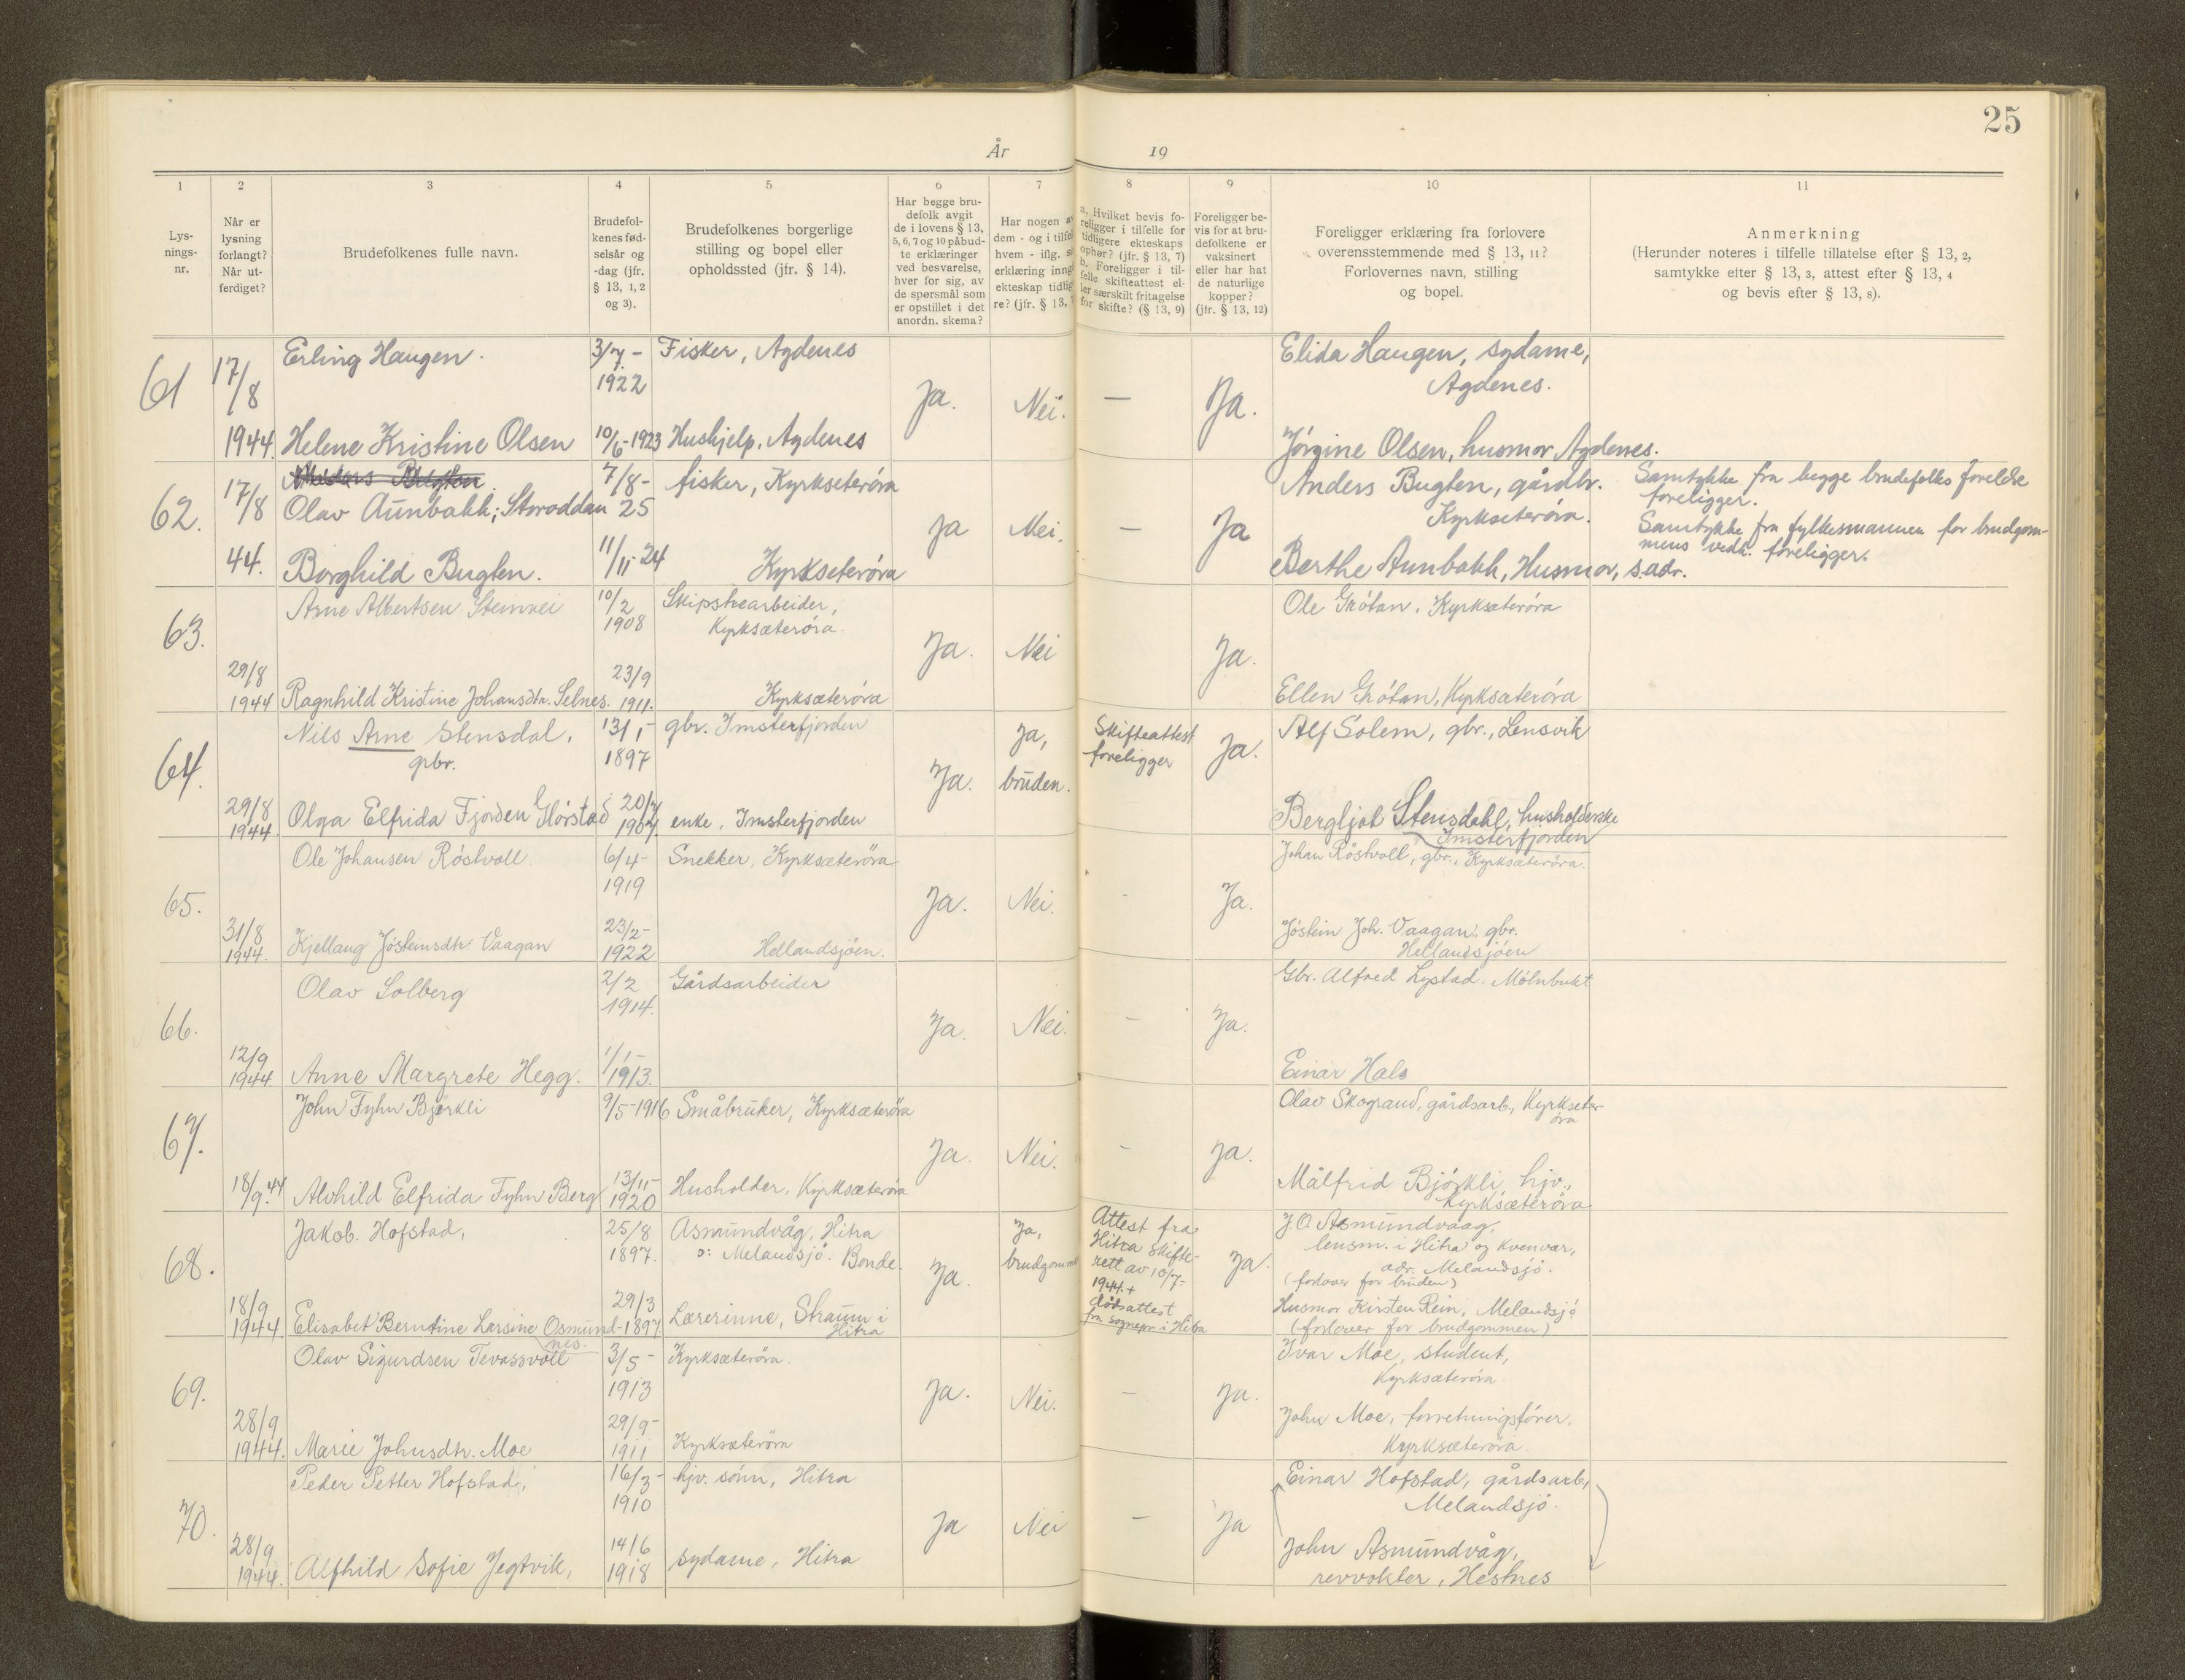 25
År 19
1 2 3 4 5 6 7 8 9 10 11
Lys-
nings-
nr.
Når er
lysning
forlangt?
Når ut-
ferdiget?
Brudefolkenes fulle navn.
Brudefol-
kenes fød-
selsår og
-dag (jfr.
§ 13, 1, 2
og 3).
Brudefolkenes borgerlige
stilling og bopel eller
opholdssted (jfr. § 14).
Har begge bru-
defolk avgit
de i lovens § 13,
5, 6, 7 og 10 påbud-
te erklæringer
ved besvarelse,
hver for sig, av
de spørsmål som
er opstillet i det
anordn. skema?
Har nogen a
dem - og i tilfel
hvem - iflg. s
erklæring inng
ekteskap tidlig
re? (jfr. § 13,
a. Hvilket bevis fo-
religger i tilfelle for
tidligere ekteskaps
ophør? (jfr. § 13, 7)
b. Foreligger i til-
felle skifteattest el-
ler særskilt fritagelse
for skifte? (§ 13, 9)
Foreligger be-
vis for at bru-
defolkene er
vaksinert
eller har hat
de naturlige
kopper?
(jfr. § 13, 12)
Foreligger erklæring fra forlovere
overensstemmende med § 13, 11?
Forlovernes navn, stilling
og bopel.
Anmerkning
(Herunder noteres i tilfelle tillatelse efter § 13, 2,
samtykke efter § 13, 3, attest efter § 13, 4
og bevis efter § 13, 8).
61
17/8
1944
Erling Haugen.
3/7-
1922
Fisker, Agdenes
Helene Kristine Olsen
10/6-1923
Hushjelp, Agdenes
Ja.
Nei.
—
Ja.
Elida Haugen, sydame,
Agdenes.
Jörgine Olsen, husmor, Agdenes.
62.
17/8
44.
Bugten
Olav Aunbakk; Storoddan
7/8-
25
fisker, Kyrkseteröra
Borghild Bugten.
11/11-24
Kyrkseteröra
Ja
Nei.
—
Ja
Anders Bugten, gårdbr.
Kyrkseteröra.
Berthe Aunbakk, Husmor, s.adr.
Samtykke fra begge brudefolks foreldre
foreligger.
Samtykke fra fylkesmannen for brudgom-
mens vedk. foreligger.
63.
29/8
1944
Arne Albertsen Steinvei
10/2
1908
Skipstrearbeider,
Kyrksæteröra.
Ragnhild Kristine Johansdtr. Selnes.
23/9
1911.
Kyrksæteröra
Ja.
Nei
Ja.
Ole Grötan, Kyrksæteröra
Ellen Grötan, Kyrksæteröra
64.
29/8
1944
Nils Arne Stensdal,
gbr.
13/1-
1897
gbr. Imsterfjorden
Olga Elfrida Fjorden Glörstad
20/7
1907.
enke, Imsterfjorden
Ja.
Ja,
bruden.
Skifteattest
foreligger
Ja.
Alf Solem, gbr., Lensvik
Bergljot Stensdahl, husholderske
Imsterfjorden
65.
31/8
1944.
Ole Johansen Röstvoll.
6/4-
1919
Snekker, Kyrksæteröra
Kjellaug Jösteinsdtr. Vaagan
23/2-
1922
Hellandsjöen.
Ja.
Nei.
-
Ja.
Johan Röstvoll, gbr., Kyrksæteröra.
Jöstein Joh. Vaagan, gbr.
Hellandsjöen
66.
12/9
1944
Olav Solberg
2/2
1914.
Gårdsarbeider
Anne Margrete Hegg.
1/1-
1913.
Ja.
Nei.
—
Ja.
Gbr. Alfred Lystad. Mölnbukt
Einar Hals
67.
18/9.44
John Fyhn Bjerkli
9/5-1916
Småbruker, Kyrksæteröra
Alvhild Elfrida Fyhn Berg
13/11-
1920
Husholder, Kyrksæteröra
Ja.
Nei.
-
Ja.
Olav Skogrand, gårdsarb., Kyrkseter-
öra
Målfrid Björkli, hjv.,
Kyrksæteröra
68.
18/9
1944
Jakob. Hofstad,
25/8
1897.
Asmundvåg, Hitra
o: Melandsjö. Bonde.
Elisabet Berntine Larsine Osmund-
nes.
29/3
1897.
Lærerinne, Straum i
Hitra
Ja.
Ja,
brudgomm
Attest fra
Hitra skifte-
rett av 10/7-
1944. +
dödsattest
fra sognepr. i Hitra
Ja.
J O Asmundvaag,
lensm. i Hitra og Kvenvær,
adr. Melandsjö.
(forlover for bruden)
Husmor Kirsten Rein, Melandsjö
(forlover for brudgommen)
69.
28/9
1944.
Olav Sigurdsen Tevassvoll
3/5-
1913
Kyrksæteröra.
Marie Johnsdtr. Moe
29/9-
1911
Kyrksæteröra
Ja.
Nei.
—
Ja.
Ivar Moe, student,
Kyrksæteröra.
John Moe, forretningsförer,
Kyrksæteröra.
70.
28/9
1944.
Peder Petter Hofstad,
16/3-
1910
hjv. sönn, Hitra
Alfhild Sofie Jegtvik,
14/6
1918
sydame, Hitra
Ja
Nei
—
Ja
Einar Hofstad, gårdsarb,
Melandsjö.
John Asmundvåg,
revvokter, Hestnes